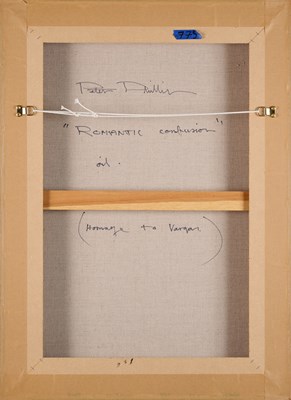 Peter Phillips
"ROMANTIC confusion"
oil.
(Homage to Vargas)